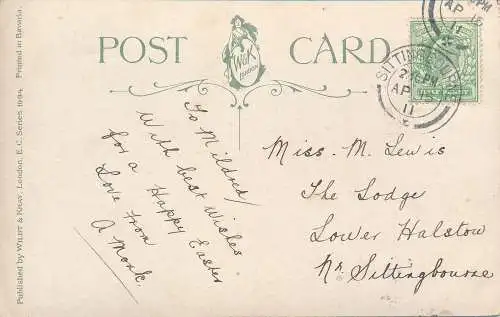 POST CARD
W & K
LONDON
SITTINGBOURNE
2 PM
AP 15
11
PM
AP 15
11
HALFPENNY
To Mildred/
With best Wishes
for a Happy Easter
Love from
A Monk
Miss. M. Lewis
The Lodge
Lower Halstow
Nr. Sittingbourne
Published by WILDT & KRAY, London, E.C. Series 1694. Printed in Bavaria.